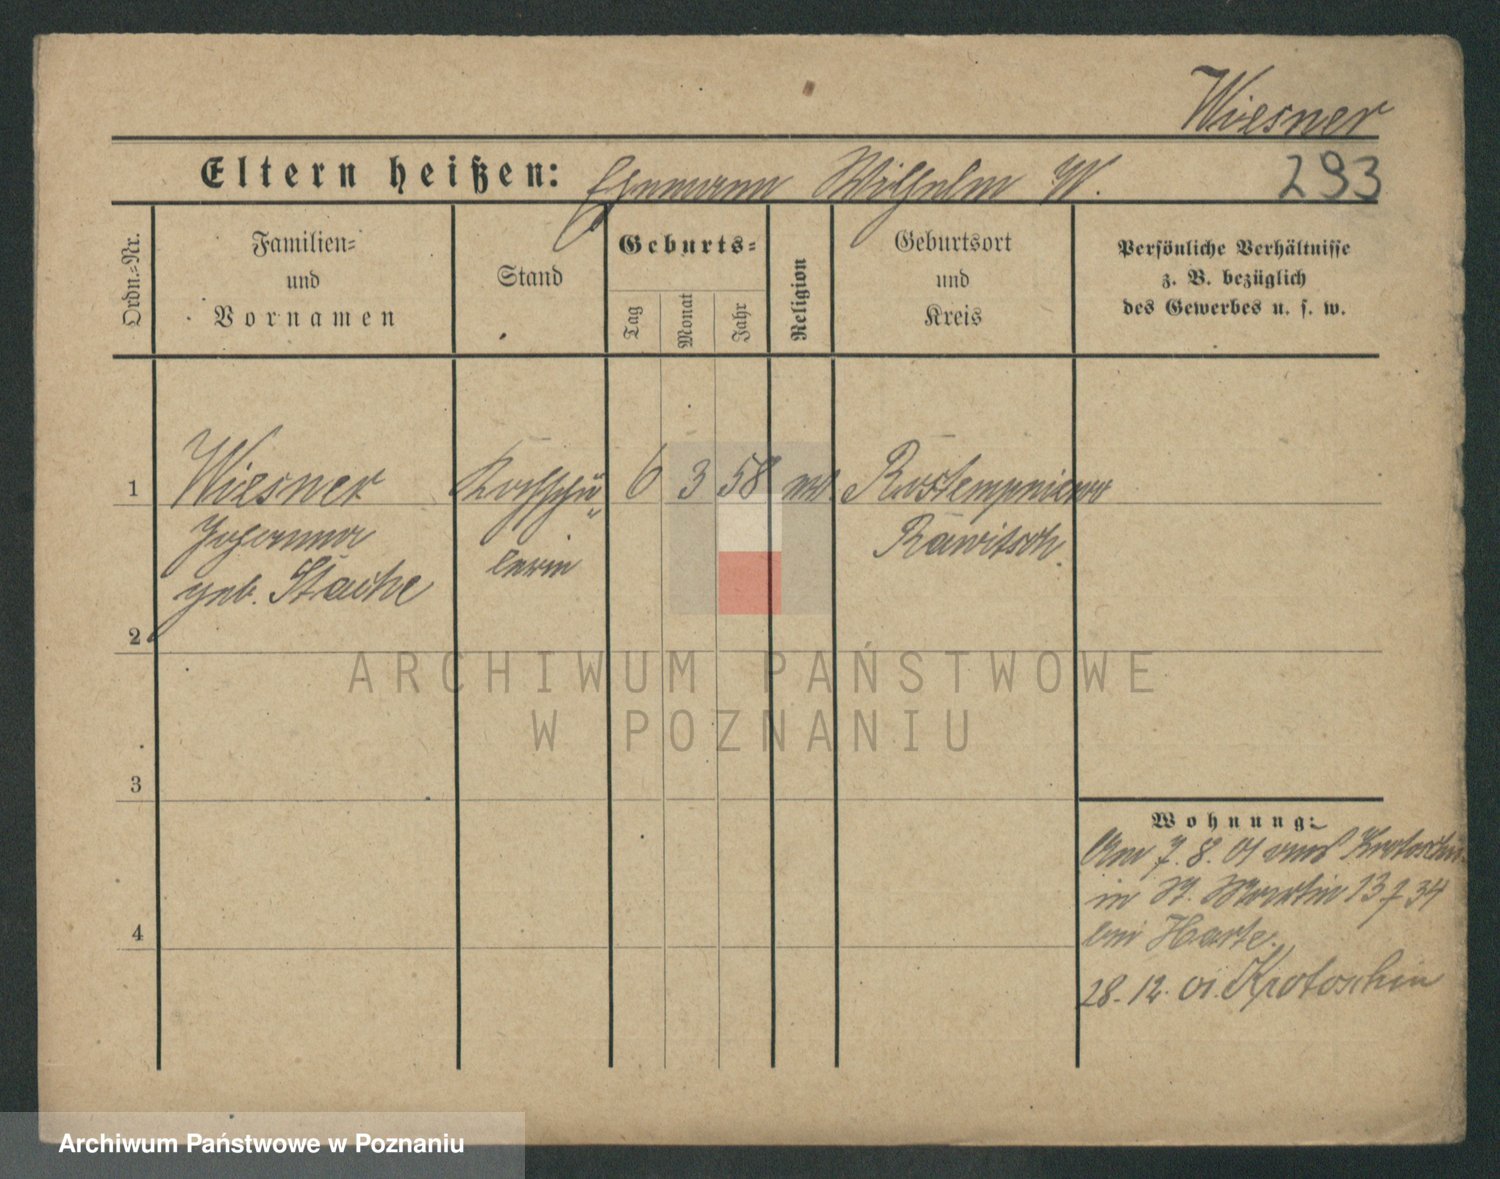 Wiesner
293
Eltern heißen: Ehemann Wilhelm W.
Ordn.=Nr.
Familien=
und
Vornamen
Stand
Geburts=
Tag
Monat
Jahr
Religion
Geburtsort
und
Kreis
Persönliche Verhältnisse
z. B. bezüglich
des Gewerbes u. s. w.
1
Wiesner
Johanna
geb. Stache
Kochschü„
lerin
6 3 58
Rawitsch.
2
3
4
Wohnung:
Am 7. 8. 01 aus Krotoschin
in St. Martin
bei Harte.
28. 12. 01. Krotoschin
ARCHIWUM PAŃSTWOWE
W POZNANIU
Archiwum Państwowe w Poznaniu